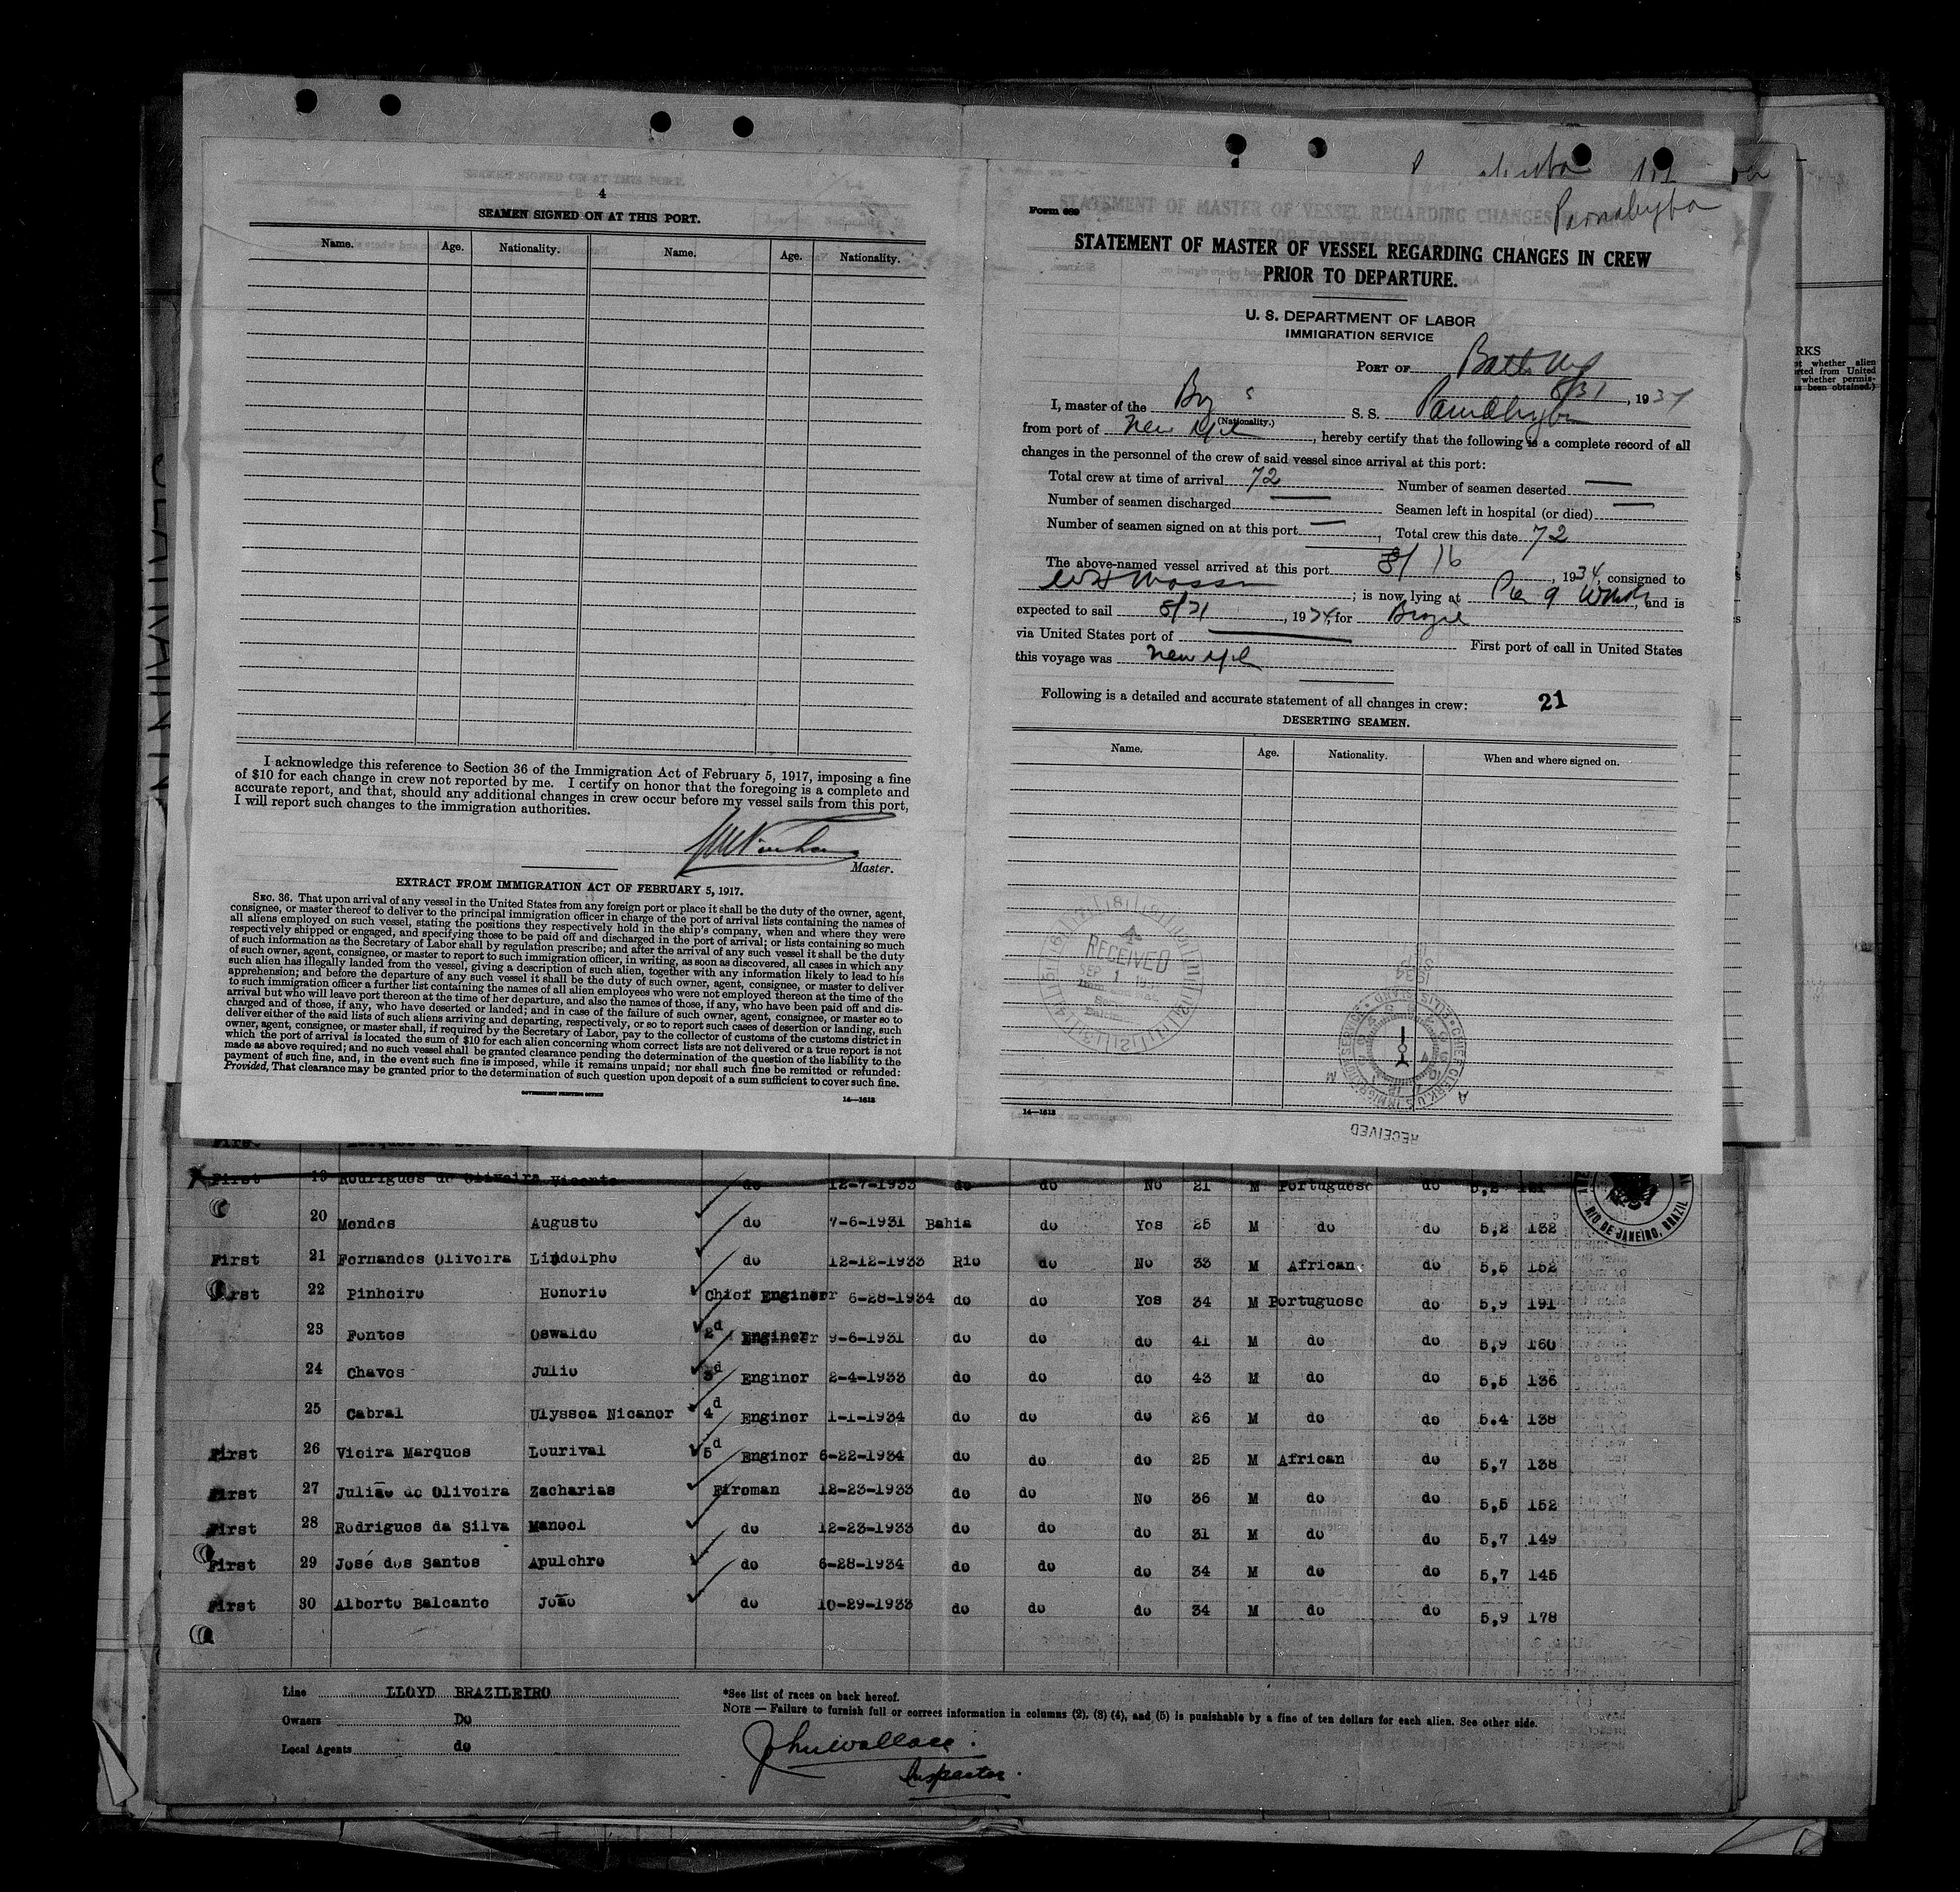 4
SEAMEN SIGNED ON AT THIS PORT.
Name. Age. Nationality. Name. Age. Nationality.
I acknowledge this reference to Section 36 of the Immigration Act of February 5, 1917, imposing a fine
of $10 for each change in crew not reported by me. I certify on honor that the foregoing is a complete and
accurate report, and that, should any additional changes in crew occur before my vessel sails from this port,
I will report such changes to the immigration authorities.
Master.
EXTRACT FROM IMMIGRATION ACT OF FEBRUARY 5, 1917.
SEC. 36. That upon arrival of any vessel in the United States from any foreign port or place it shall be the duty of the owner, agent,
consignee, or master thereof to deliver to the principal immigration officer in charge of the port of arrival lists containing the names of
all aliens employed on such vessel, stating the positions they respectively hold in the ship's company, when and where they were
respectively shipped or engaged, and specifying those to be paid off and discharged in the port of arrival; or lists containing so much
of such information as the Secretary of Labor shall by regulation prescribe; and after the arrival of any such vessel it shall be the duty
of such owner, agent, consignee, or master to report to such immigration officer, in writing, as soon as discovered, all cases in which any
such alien has illegally landed from the vessel, giving a description of such alien, together with any information likely to lead to his
apprehension; and before the departure of any such vessel it shall be the duty of such owner, agent, consignee, or master to deliver
to such immigration officer a further list containing the names of all alien employees who were not employed thereon at the time of the
arrival but who will leave port thereon at the time of her departure, and also the names of those, if any, who have been paid off and dis-
charged and of those, if any, who have deserted or landed; and in case of the failure of such owner, agent, consignee, or master so to
deliver either of the said lists of such aliens arriving and departing, respectively, or so to report such cases of desertion or landing, such
owner, agent, consignee, or master shall, if required by the Secretary of Labor, pay to the collector of customs of the customs district in
which the port of arrival is located the sum of $10 for each alien concerning whom correct lists are not delivered or a true report is not
made as above required; and no such vessel shall be granted clearance pending the determination of the question of the liability to the
payment of such fine, and, in the event such fine is imposed, while it remains unpaid; nor shall such fine be remitted or refunded:
Provided, That clearance may be granted prior to the determination of such question upon deposit of a sum sufficient to cover such fine.
GOVERNMENT PRINTING OFFICE 14—1613
Parnahyba
Form 689
STATEMENT OF MASTER OF VESSEL REGARDING CHANGES IN CREW
PRIOR TO DEPARTURE.
U. S. DEPARTMENT OF LABOR
IMMIGRATION SERVICE
PORT OF Balto Md
8/31, 1934
I, master of the Brz S. S. Parnahyba
(Nationality.)
from port of New York, hereby certify that the following is a complete record of all
changes in the personnel of the crew of said vessel since arrival at this port:
Total crew at time of arrival 72 Number of seamen deserted —
Number of seamen discharged — Seamen left in hospital (or died) —
Number of seamen signed on at this port —, Total crew this date 72
The above-named vessel arrived at this port 8/16, 1934, consigned to
; is now lying at Pier 9, and is
expected to sail 8/31, 1934, for Brazil
via United States port of — First port of call in United States
this voyage was New York
Following is a detailed and accurate statement of all changes in crew: 21
DESERTING SEAMEN.
Name. Age. Nationality. When and where signed on.
RECEIVED
SEP 1 1934
CHIEF CLERK U.S. IMMIGRATION SERVICE ELLIS ISLAND
1934
RECEIVED
14—1613
RKS
whether alien
rted from United
whether permis-
s been obtained.)
First 19 Rodrigues de Oliveira Vicente do 12-7-1933 do do No 21 M Portuguese do 5,2 121
20 Mendes Augusto do 7-6-1931 Bahia do Yes 25 M do do 5,2 132
First 21 Fernandes Oliveira Lindolpho do 12-12-1933 Rio do No 33 M African do 5,5 152
First 22 Pinheiro Honorio Chief Engineer 6-28-1934 do do Yes 34 M Portuguese do 5,9 191
23 Fontes Oswaldo 2d Enginer 9-6-1931 do do do 41 M do do 5,9 160
24 Chaves Julio 3d Enginer 2-4-1933 do do do 43 M do do 5,5 136
25 Cabral Ulyssea Nicanor 4d Enginer 1-1-1934 do do do 26 M do do 5.4 138
First 26 Vieira Marques Lourival 5d Enginer 6-22-1934 do do do 25 M African do 5,7 138
First 27 Julião de Oliveira Zacharias Fireman 12-23-1933 do do No 36 M do do 5,5 152
First 28 Rodrigues da Silva Manoel do 12-23-1933 do do do 31 M do do 5,7 149
First 29 José dos Santos Apulchro do 6-28-1934 do do do 34 M do do 5,7 145
First 30 Alberto Balcante João do 10-29-1933 do do do 34 M do do 5,9 178
RIO DE JANEIRO, BRAZIL
Line LLOYD BRAZILEIRO
Owners Do
Local Agents do
*See list of races on back hereof.
NOTE — Failure to furnish full or correct information in columns (2), (3) (4), and (5) is punishable by a fine of ten dollars for each alien. See other side.
John Wallace.
Inspector.